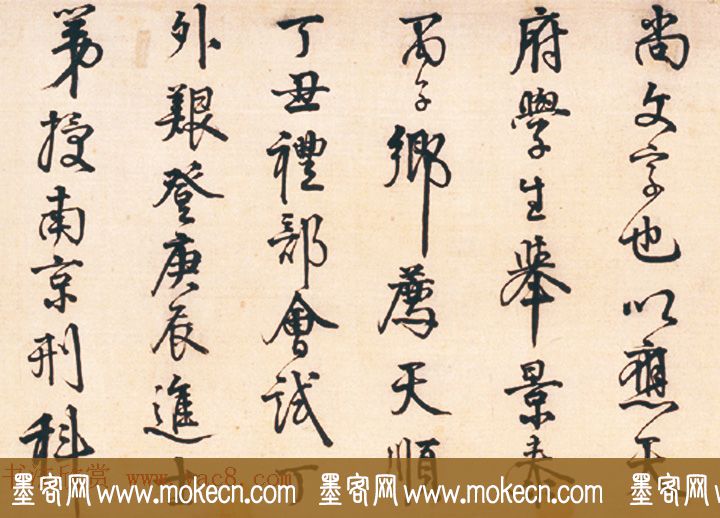 尚文字也以應天
府學生舉景泰
丙子鄉薦天順
丁丑禮部會試丁
外艱登庚辰進士
第授南京刑科
书法欣赏 www.yac8.com
墨客网 www.mokecn.com 墨客网 www.mokecn.com